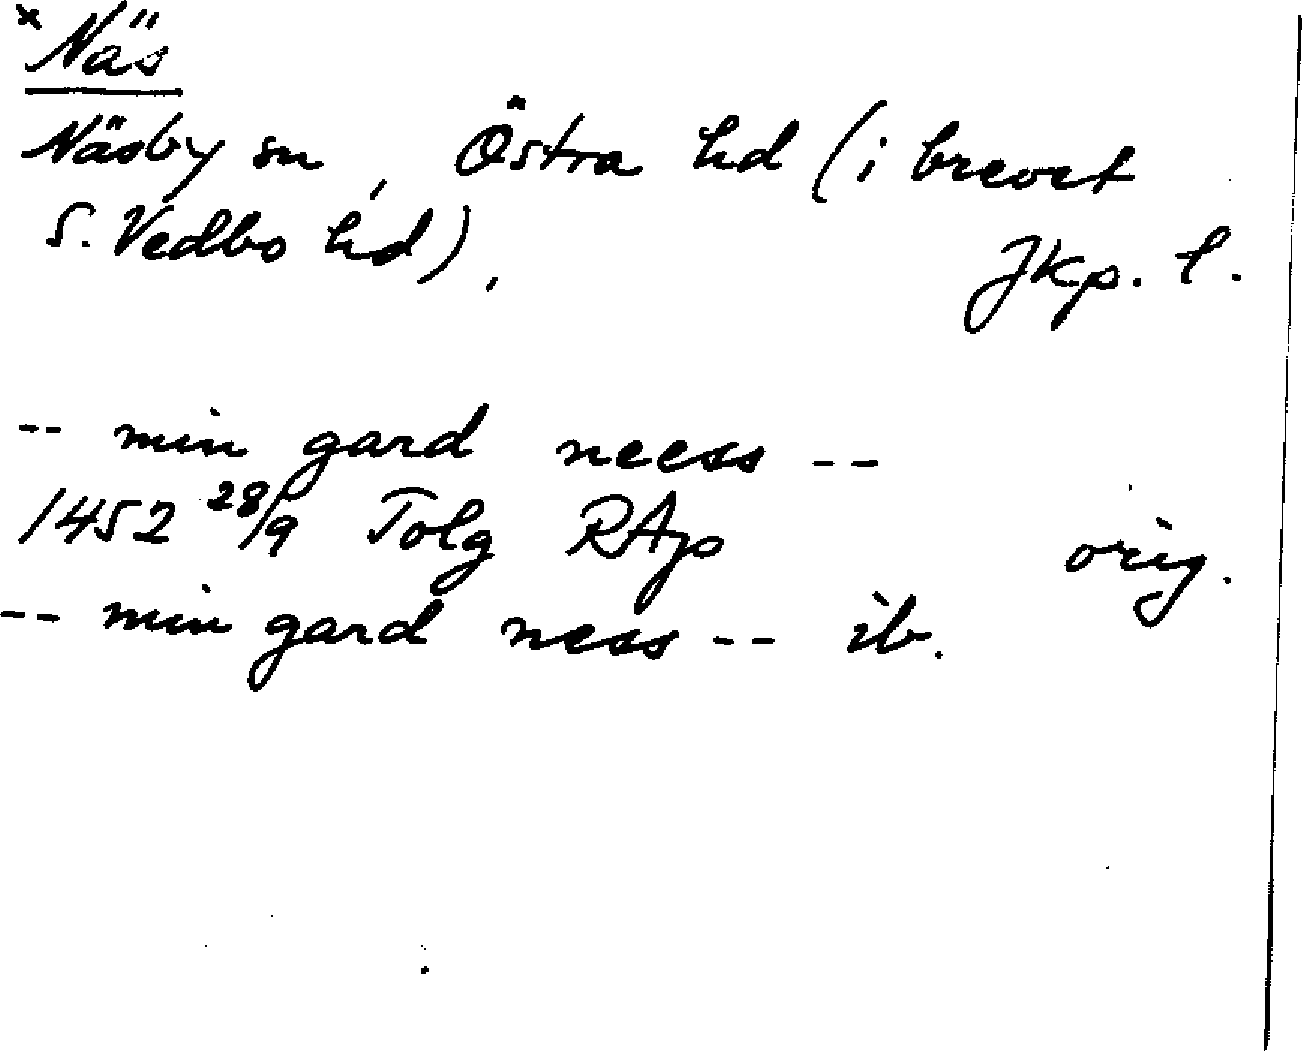 x Näs
Näsby sn, Östra hd (i brevet
S. Vedbo hd), Jkp. l.
-- min gard neess --
1452 28/9 Tolg RAp orig.
-- min gard ness -- ib.